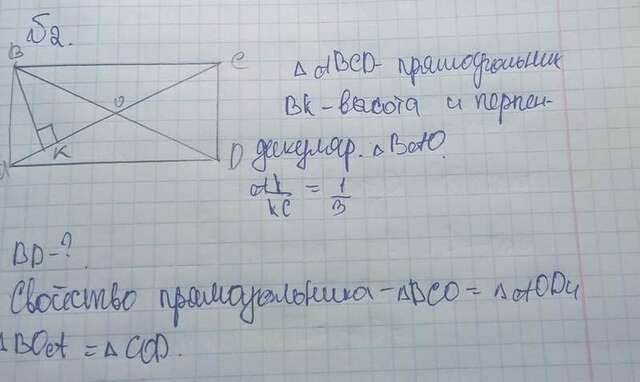 №2.
B
C
O
K
A
D
△ABCD - прямоугольник
BK - высота и перпен-
дикуляр. △BAO.
AK/KC = 1/3
BD - ?
Свойство прямоугольника - △BCO = △AOD и
△BOA = △COD.